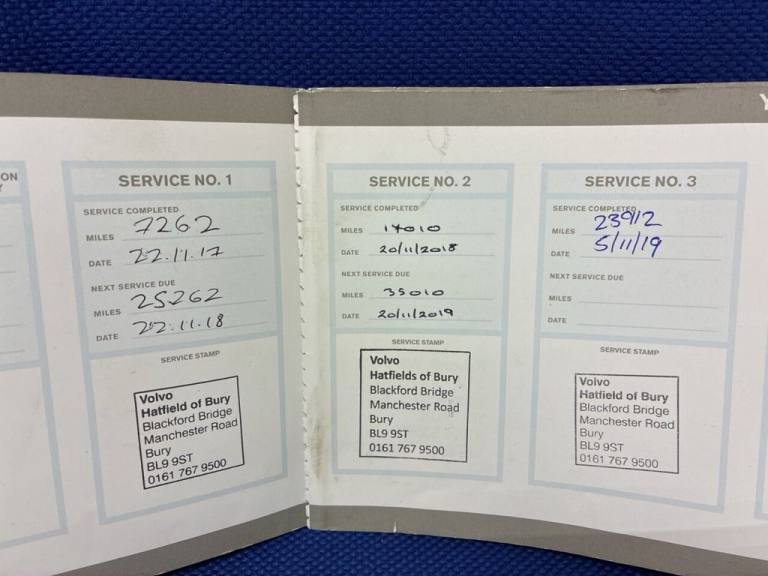 ON
SERVICE NO. 1
SERVICE COMPLETED
MILES 7262
DATE 22.11.17
NEXT SERVICE DUE
MILES 25262
DATE 22.11.18
SERVICE STAMP
Volvo
Hatfield of Bury
Blackford Bridge
Manchester Road
Bury
BL9 9ST
0161 767 9500
SERVICE NO. 2
SERVICE COMPLETED
MILES 17010
DATE 20/11/2018
NEXT SERVICE DUE
MILES 35010
DATE 20/11/2019
SERVICE STAMP
Volvo
Hatfields of Bury
Blackford Bridge
Manchester Road
Bury
BL9 9ST
0161 767 9500
SERVICE NO. 3
SERVICE COMPLETED
MILES 23912
DATE 5/11/19
NEXT SERVICE DUE
MILES
DATE
SERVICE STAMP
Volvo
Hatfield of Bury
Blackford Bridge
Manchester Road
Bury
BL9 9ST
0161 767 9500